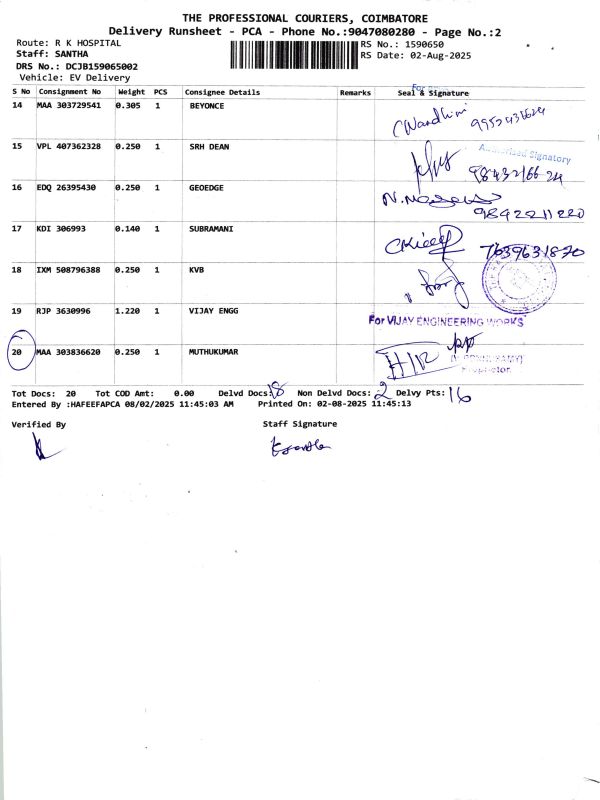 THE PROFESSIONAL COURIERS, COIMBATORE
Delivery Runsheet - PCA - Phone No.:9047080280 - Page No.:2
Route: R K HOSPITAL
RS No.: 1590650
Staff: SANTHA
RS Date: 02-Aug-2025
DRS No.: DCJB159065002
Vehicle: EV Delivery
S No Consignment No Weight PCS Consignee Details Remarks Seal & Signature
14 MAA 303729541 0.305 1 BEYONCE
15 VPL 407362328 0.250 1 SRH DEAN
Authorised Signatory
16 EDQ 26395430 0.250 1 GEOEDGE
9842211220
17 KDI 306993 0.140 1 SUBRAMANI
7639631870
18 IXM 508796388 0.250 1 KVB
19 RJP 3630996 1.220 1 VIJAY ENGG
For VIJAY ENGINEERING WORKS
20 MAA 303836620 0.250 1 MUTHUKUMAR
Proprietor
Tot Docs: 20 Tot COD Amt: 0.00 Delvd Docs: 18 Non Delvd Docs: 2 Delvy Pts: 16
Entered By :HAFEEFAPCA 08/02/2025 11:45:03 AM Printed On: 02-08-2025 11:45:13
Verified By Staff Signature